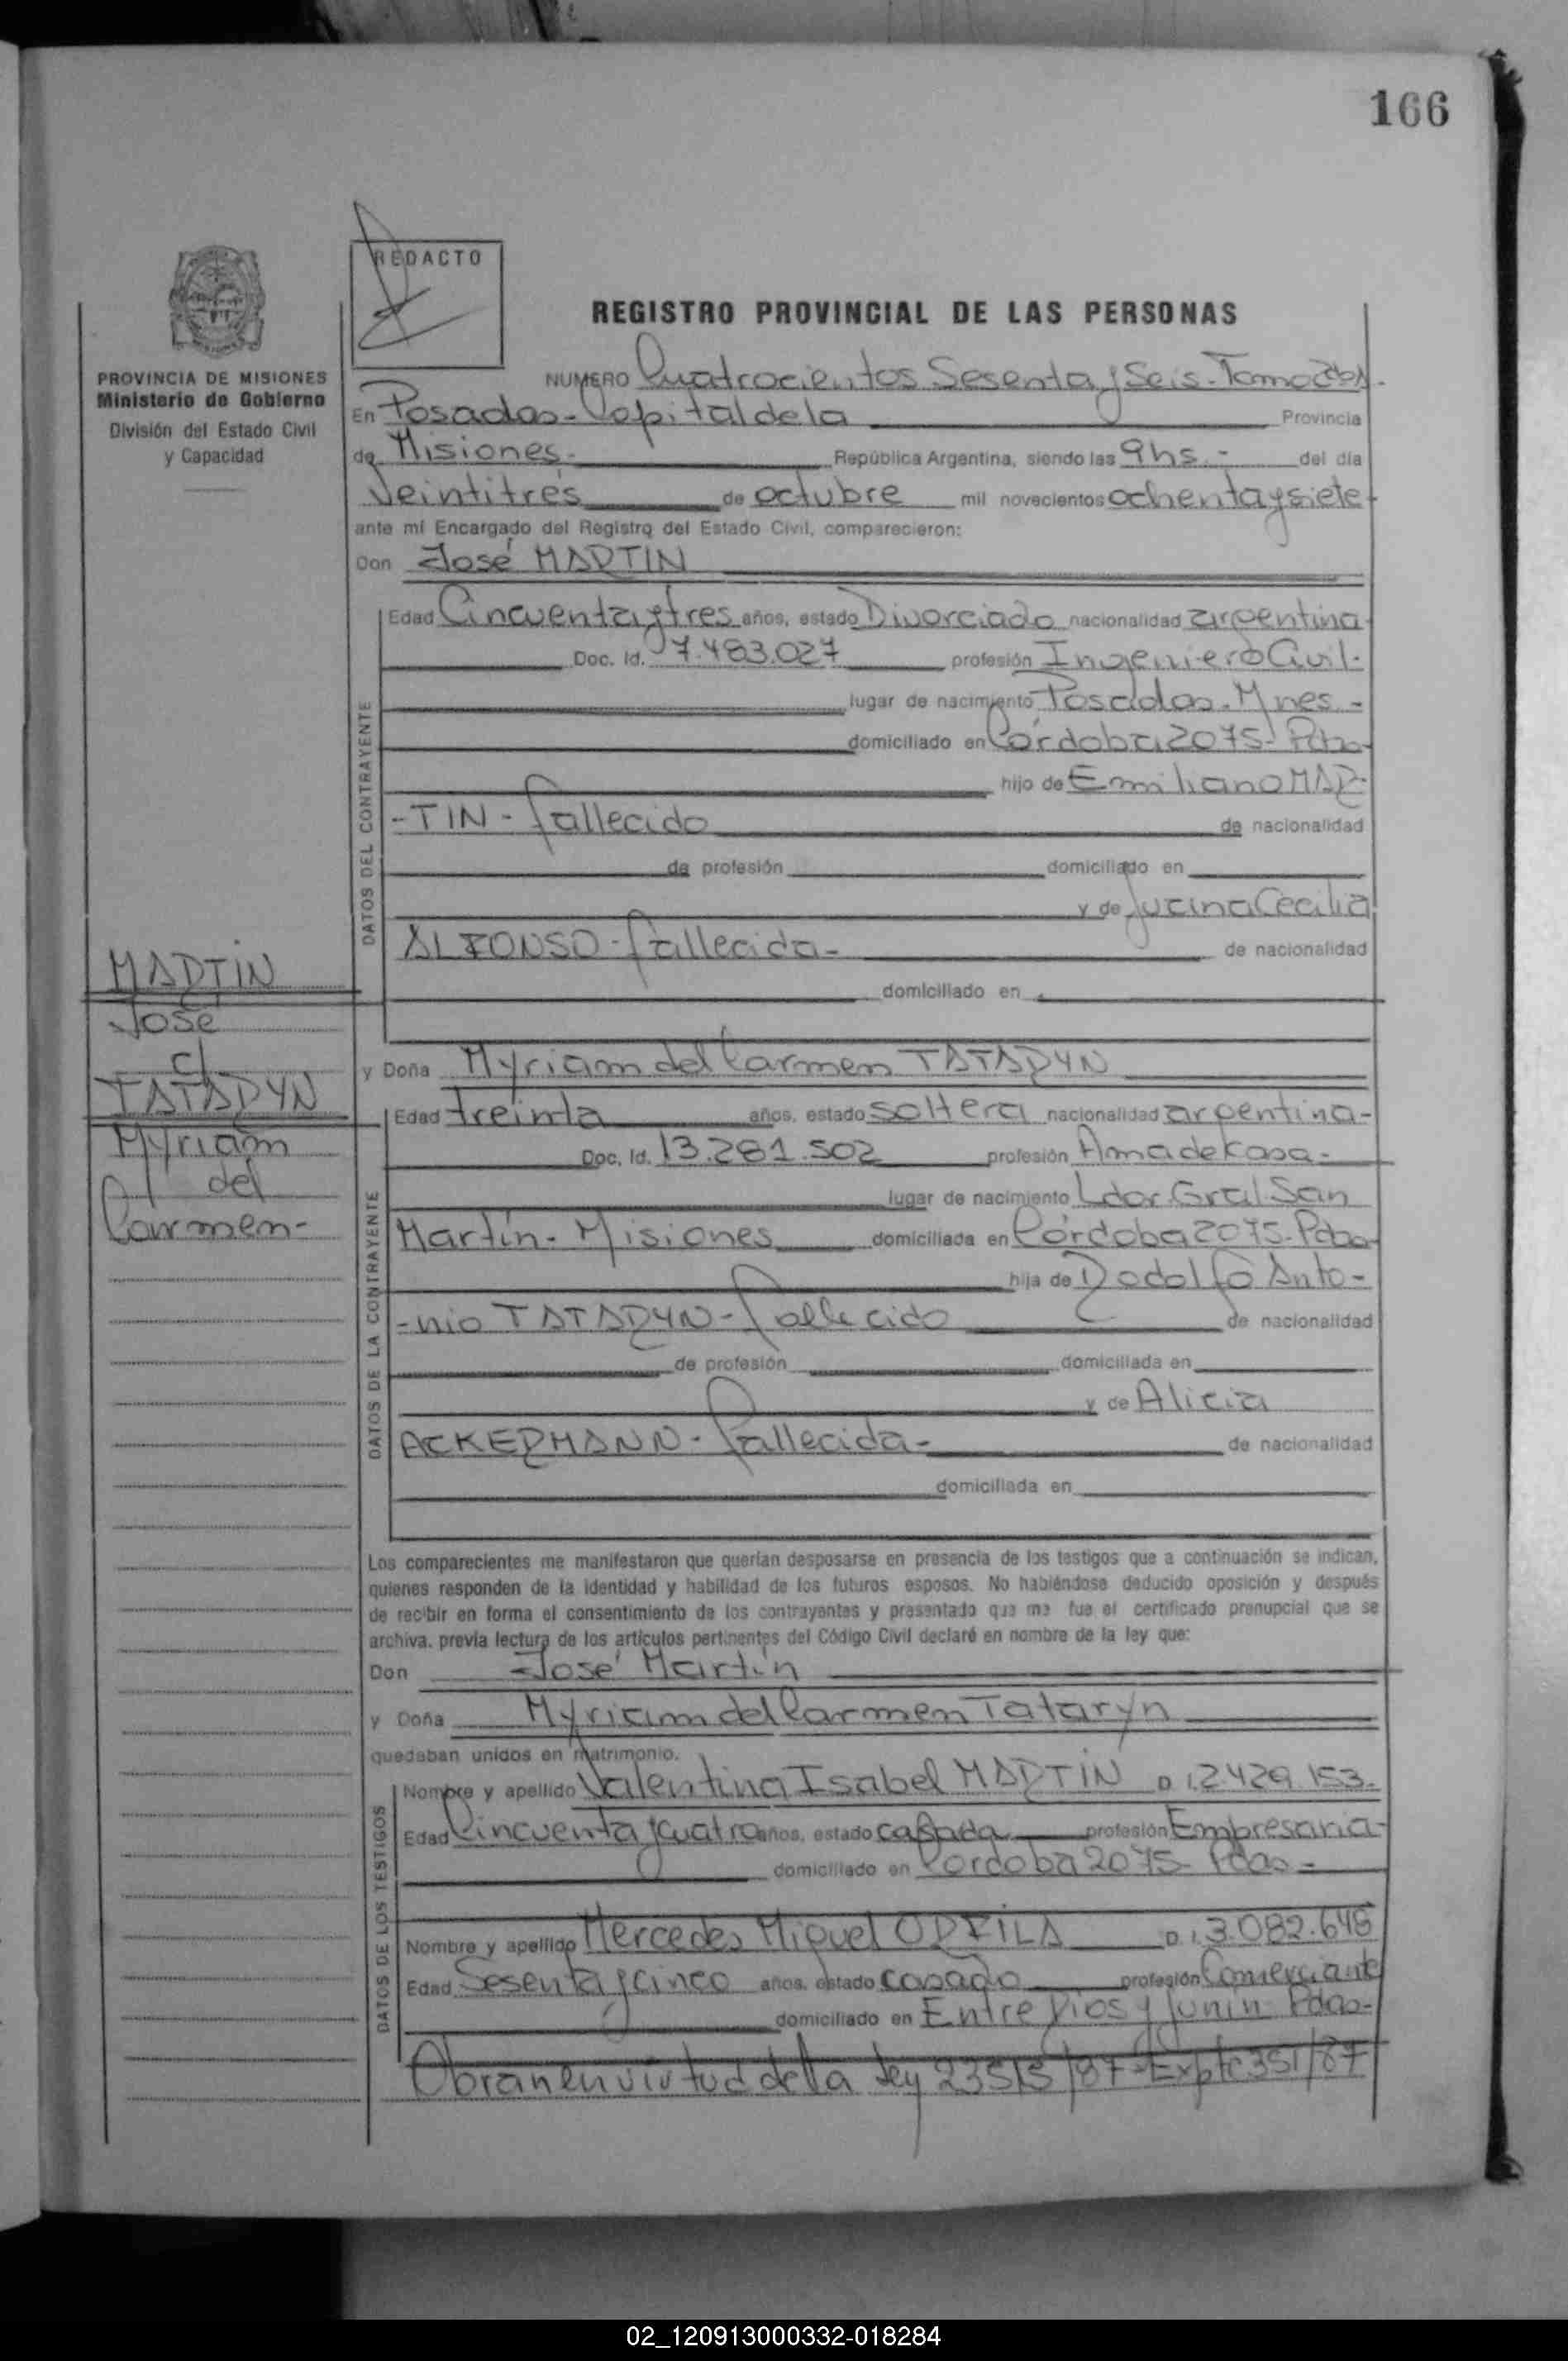 166
REDACTO
REGISTRO PROVINCIAL DE LAS PERSONAS
PROVINCIA DE MISIONES
Ministerio de Gobierno
División del Estado Civil
y Capacidad
NUMERO Cuatrocientos Sesenta y Seis - Tomo
En Posadas - Capital de la Provincia
de Misiones - República Argentina, siendo las 9 hs. - del día
Veintitrés de octubre mil novecientos ochenta y siete
ante mi Encargado del Registro del Estado Civil, comparecieron:
Don José MARTIN
DATOS DEL CONTRAYENTE
Edad Cincuenta y tres años, estado Divorciado nacionalidad argentina
Doc. Id. 7.483.027 profesión Ingeniero Civil -
lugar de nacimiento Posadas - Mnes -
domiciliado en Córdoba 2075 - Pdas
hijo de Emiliano MAR-
-TIN - fallecido de nacionalidad
de profesión domiciliado en
y de Lucina Cecilia
ALFONSO - fallecida - de nacionalidad
domiciliado en
MARTIN
José
c/
TATARYN
Myriam
del
Carmen -
y Doña Myriam del Carmen TATARYN
DATOS DE LA CONTRAYENTE
Edad treinta años, estado soltera nacionalidad argentina -
Doc. Id. 13.281.502 profesión Ama de Kasa -
lugar de nacimiento Ldor. Gral. San
Martín - Misiones domiciliada en Córdoba 2075 - Pdas
hija de Rodolfo Anto-
-nio TATARYN - fallecido de nacionalidad
de profesión domiciliada en
y de Alicia
ACKERMANN - fallecida - de nacionalidad
domiciliada en
Los comparecientes me manifestaron que querían desposarse en presencia de los testigos que a continuación se indican,
quienes responden de la identidad y habilidad de los futuros esposos. No habiéndose deducido oposición y después
de recibir en forma el consentimiento de los contrayentes y presentado que me fue el certificado prenupcial que se
archiva, previa lectura de los artículos pertinentes del Código Civil declaré en nombre de la ley que:
Don José Martín
y Doña Myriam del Carmen Tataryn
quedaban unidos en matrimonio.
DATOS DE LOS TESTIGOS
Nombre y apellido Valentina Isabel MARTIN D.I. 2.429.153.
Edad Cincuenta y cuatro años, estado casada profesión Empresaria -
domiciliado en Córdoba 2075 - Pdas -
Nombre y apellido Mercedes Miguel ORFILA D.I. 3.082.645
Edad Sesenta y cinco años, estado casado profesión Comerciante
domiciliado en Entre Rios y Junín - Pdas -
Obran en virtud de la Ley 23515/87 - Expte 351/87
02_120913000332-018284